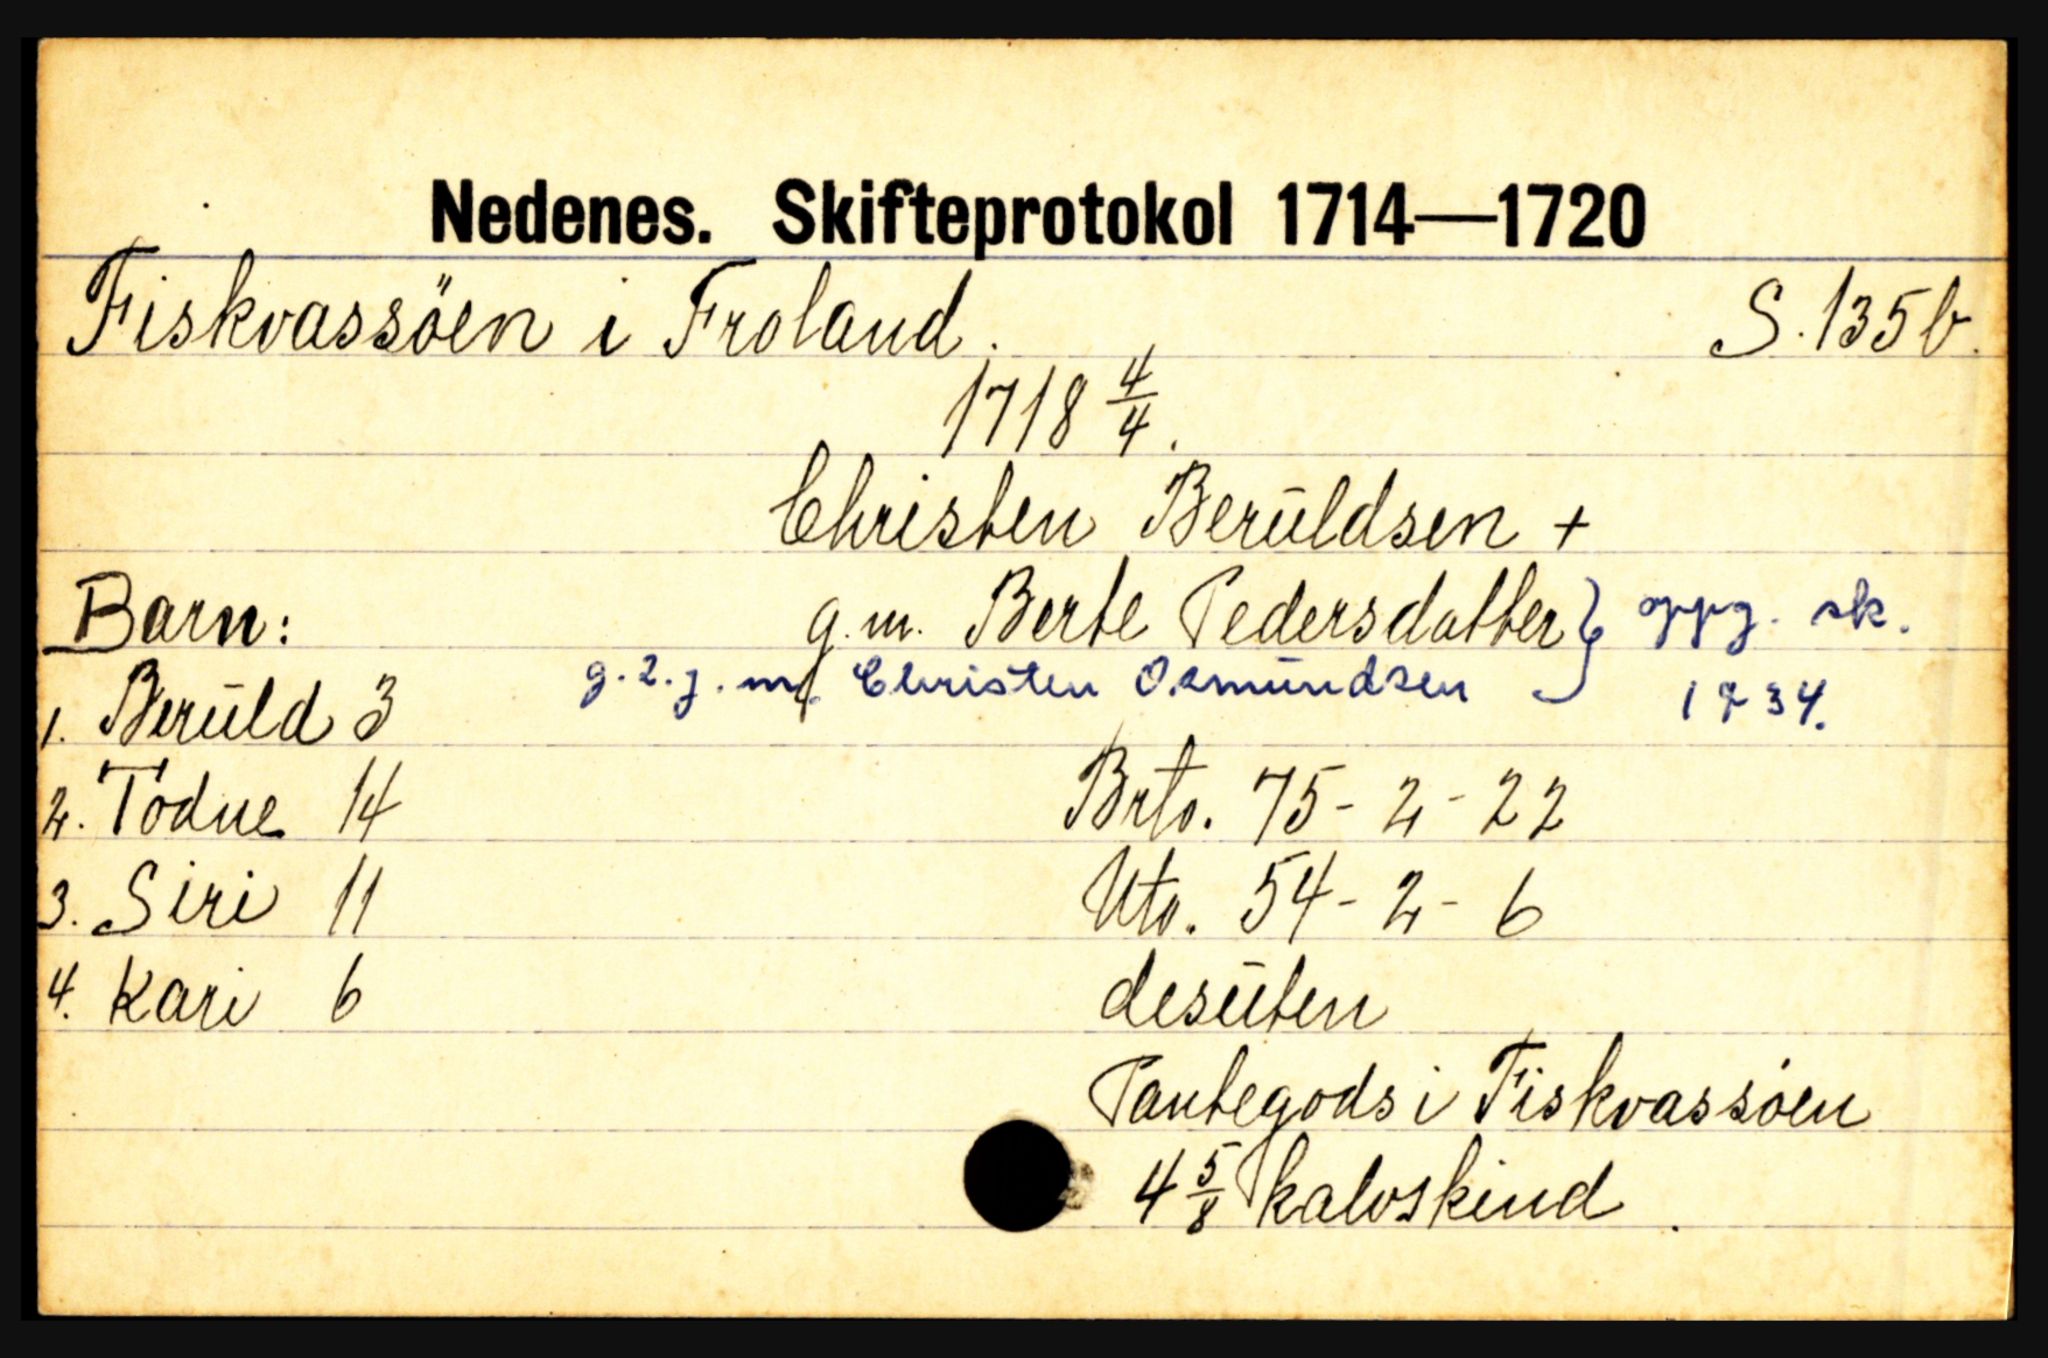 Nedenes. Skifteprotokol 1714—1720
Fiskvassöen i Froland. S. 135b.
1718 4/4.
Christen Berüldsen +
Barn: g.m. Berte Pedersdatter } oppg. sk.
g. 2. g. m. Christen Osmundsen 1734.
1. Berüld 3
2. Todne 14 Brto. 75-2-22
3. Siri 11 Uto. 54-2-6
4. Kari 6 desüten
Pantegods i Fiskvassöen
4 5/8 kalvskind.